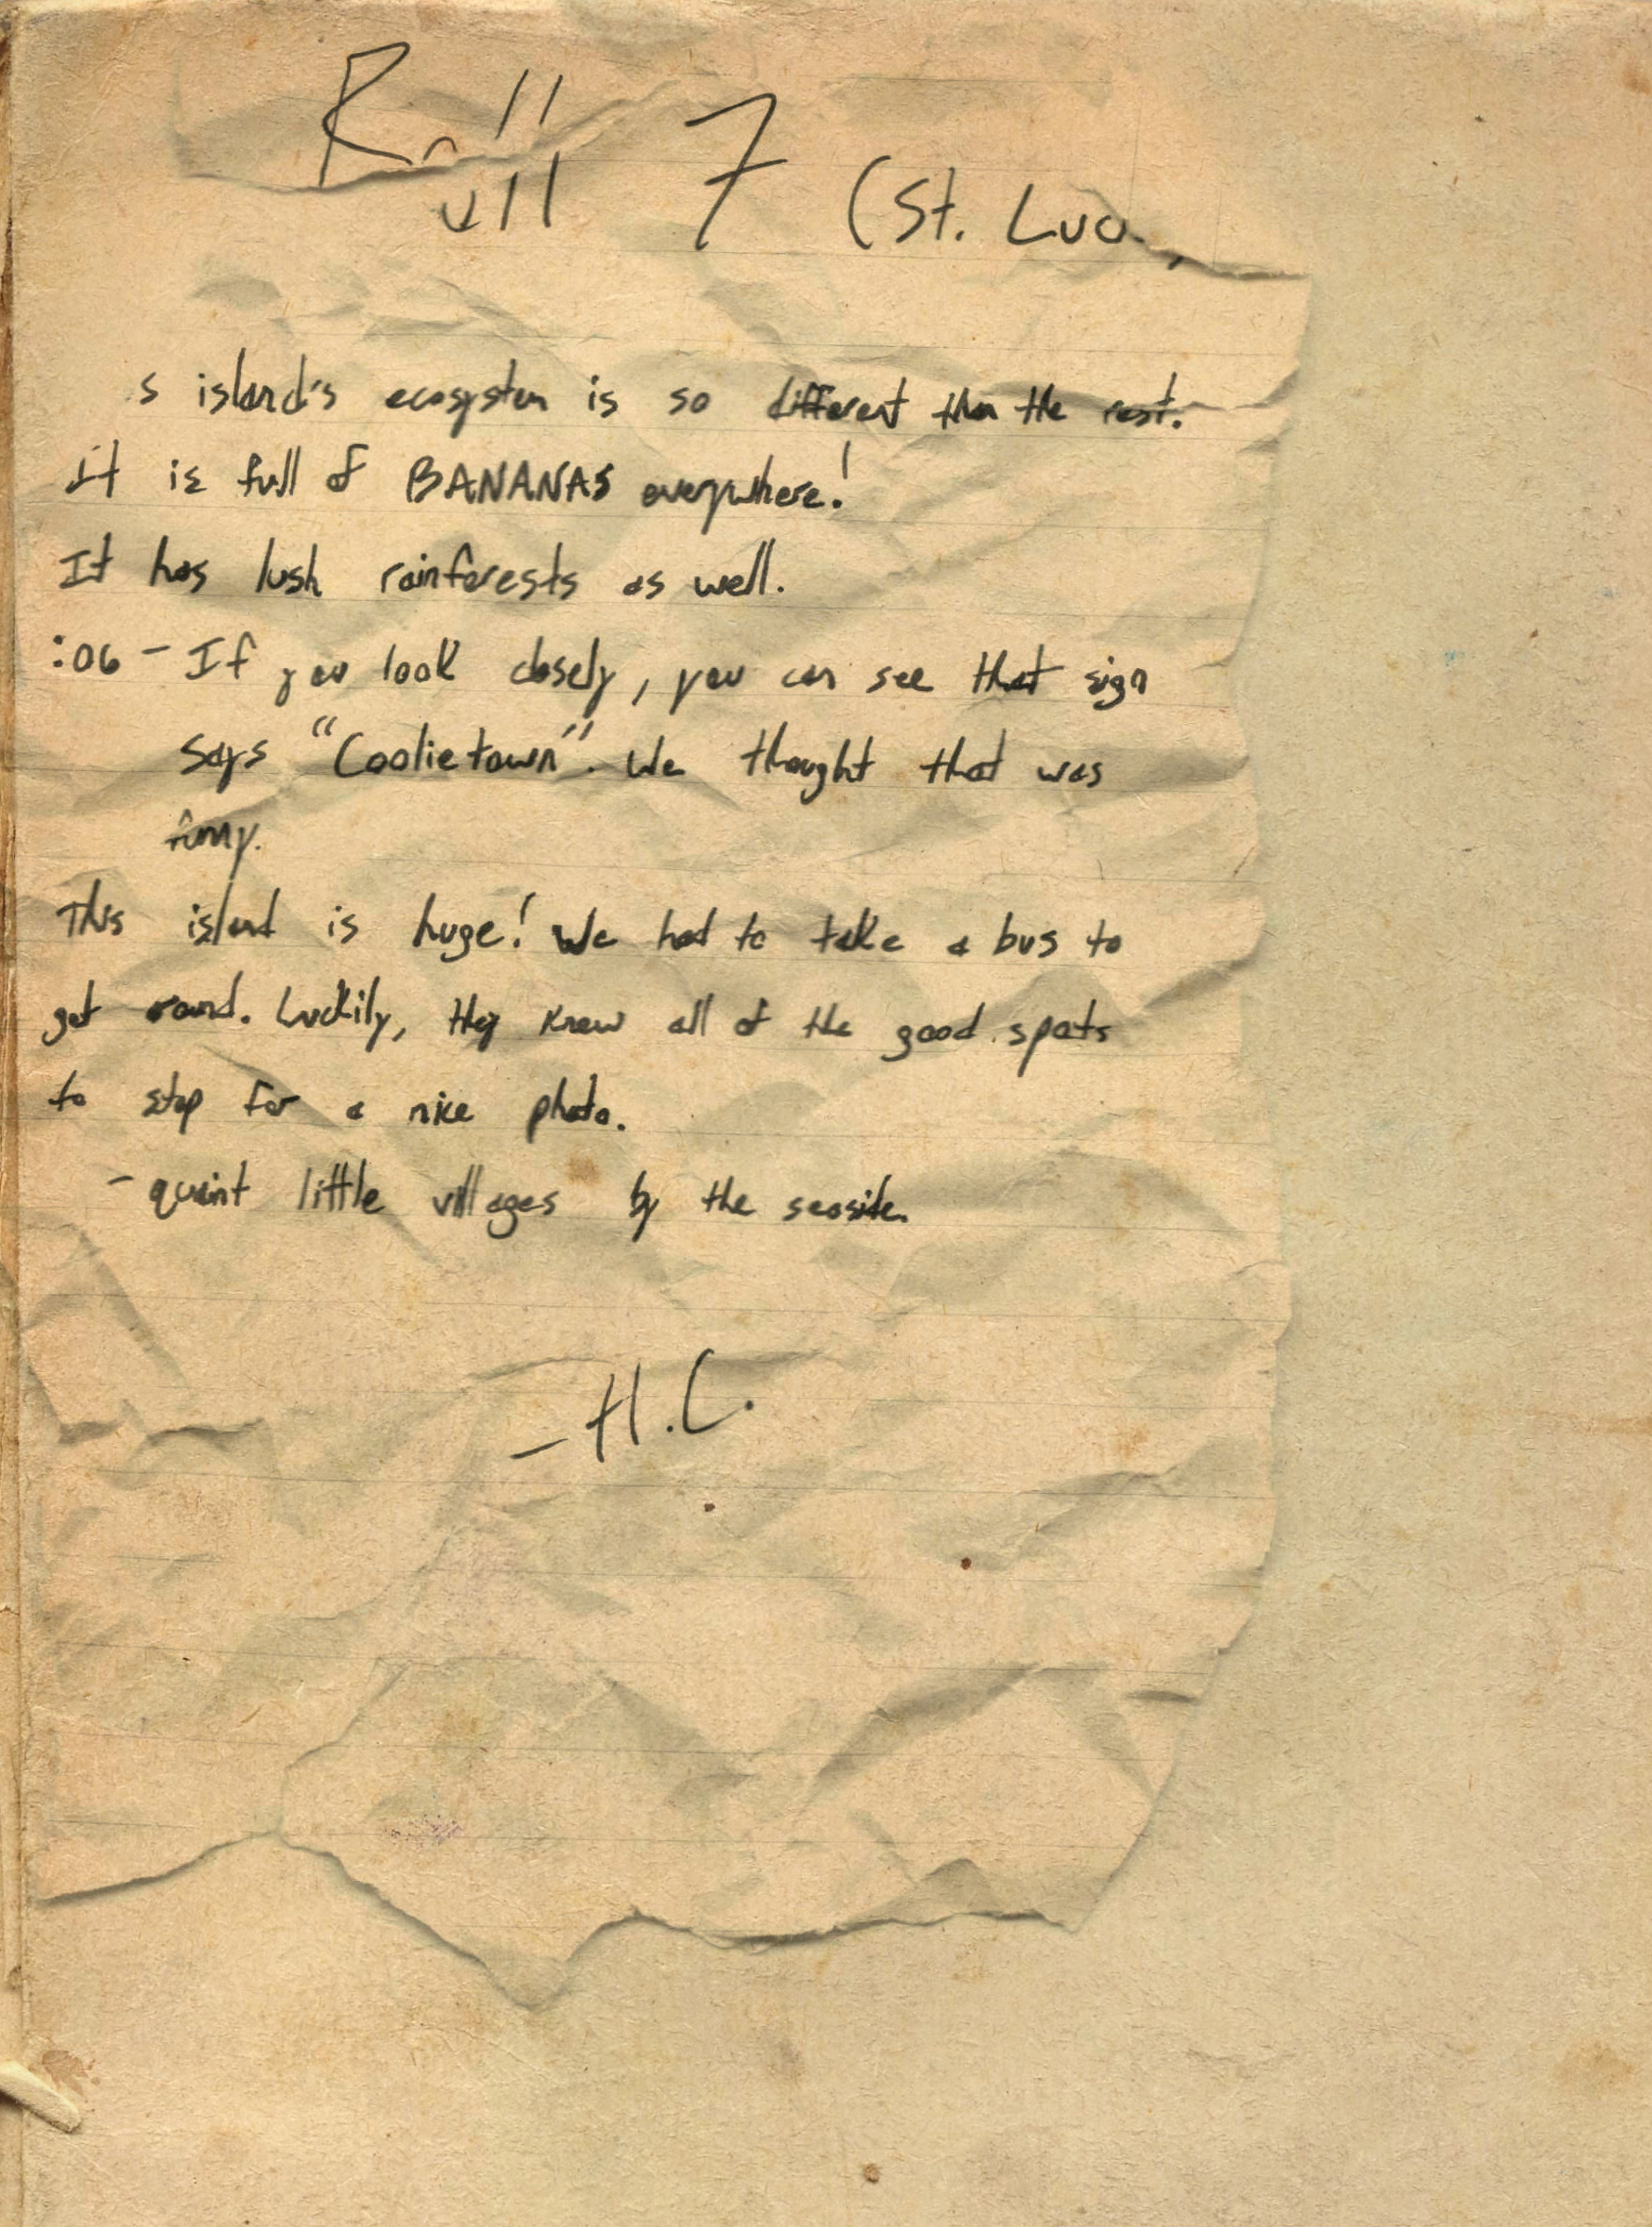 Roll 7 (St. Luc
s island's ecosystem is so different than the rest.
it is full of BANANAS everywhere!
It has lush rainforests as well.
:06 - If you look closely, you can see that sign
says "Coolietown". We thought that was
funny.
This island is huge! We had to take a bus to
get around. Luckily, they knew all of the good spots
to stop for a nice photo.
- quaint little villages by the seaside.
- H.C.